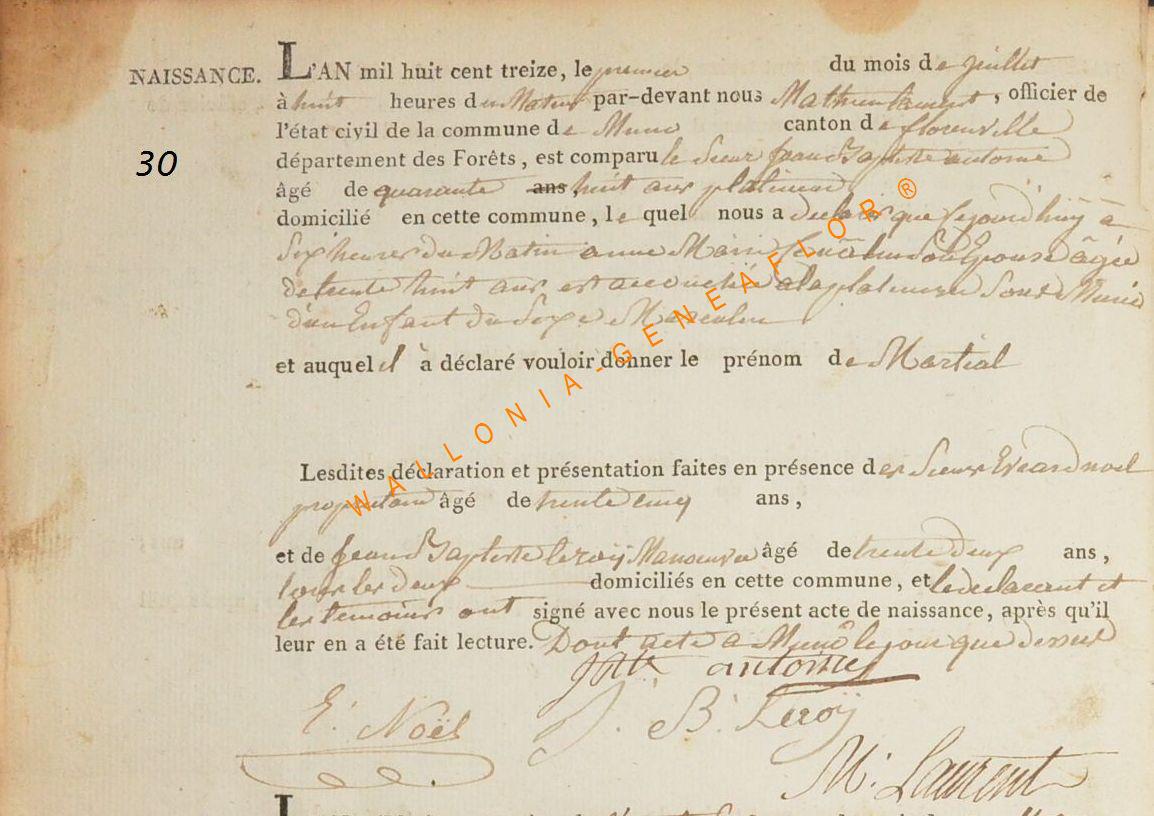 NAISSANCE. L'AN mil huit cent treize, le premier du mois de juillet
à huit heures du Matin par-devant nous Mathieu Laurent, officier de
l'état civil de la commune de Muno canton de florenville
30
département des Forêts, est comparu le Sieur Jean Baptiste antoine
âgé de quarante ans huit ans platineur
domicilié en cette commune, lequel nous a declaré que cejourd'huy à
Six heures du Matin anne Marie Son Epouse âgée
de trente huit ans est accouchée a la platinerie Sous Muno
d'un Enfant du Sexe Masculin
et auquel il à déclaré vouloir donner le prénom de Martial
Lesdites déclaration et présentation faites en présence des Sieurs Erard noel
propriétaire âgé de trente cinq ans,
et de Jean Baptiste leroÿ Manoeuvre âgé de trente deux ans,
tous les deux domiciliés en cette commune, et le declarant et
les temoins ont signé avec nous le présent acte de naissance, après qu'il
leur en a été fait lecture. Dont acte a Muno le jour que dessus
antoine
E. Noël J. B. Leroÿ
M. Laurent
WALLONIA-GENEAFLOR®